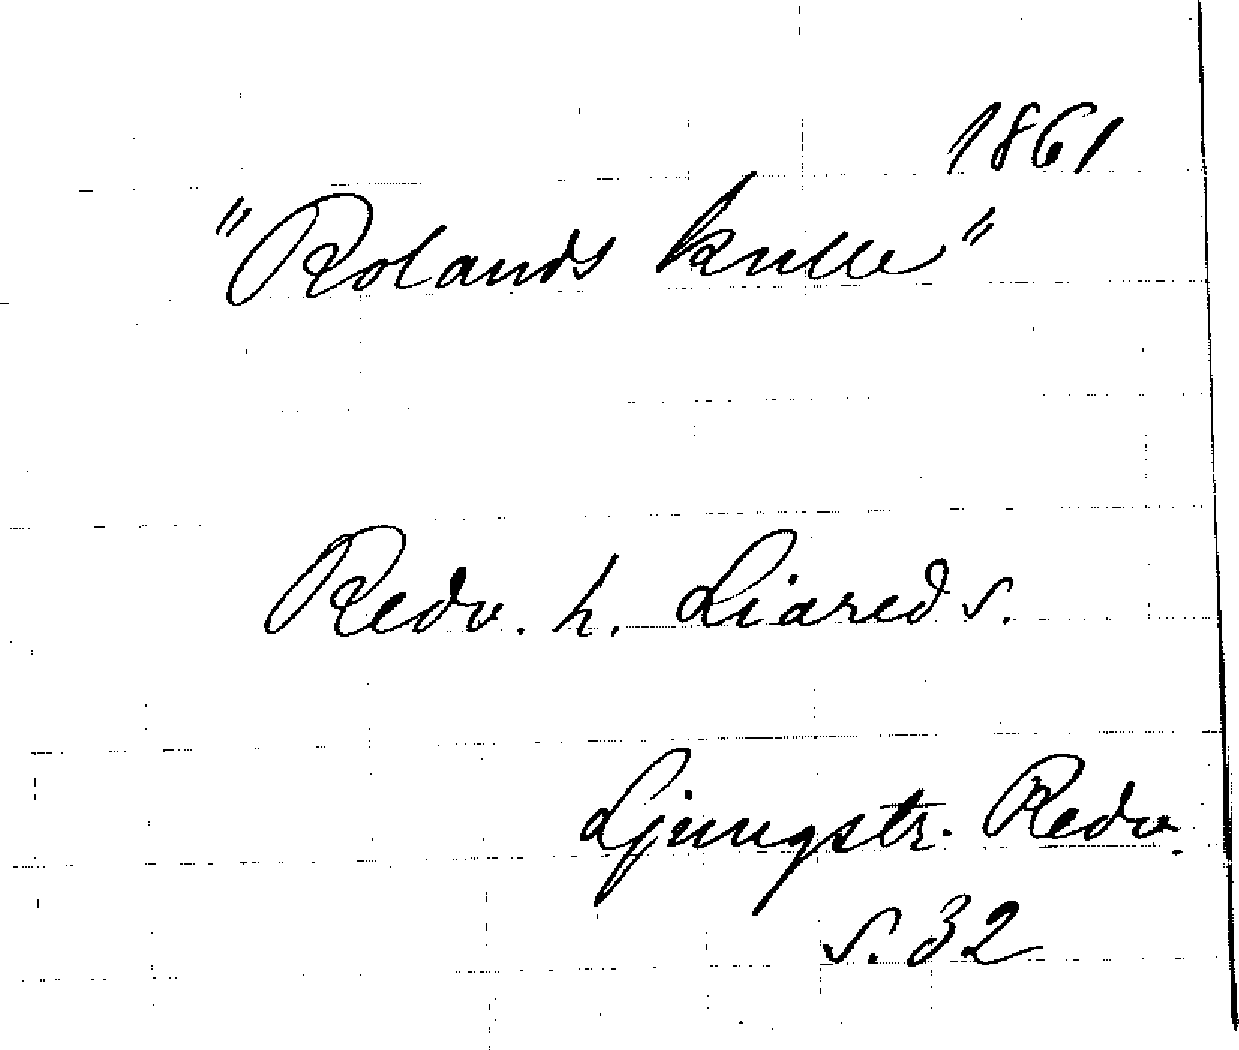 1861
"Rolands kulle"
Redv. h. Liared s.
Ljungstr. Redv.
s. 32